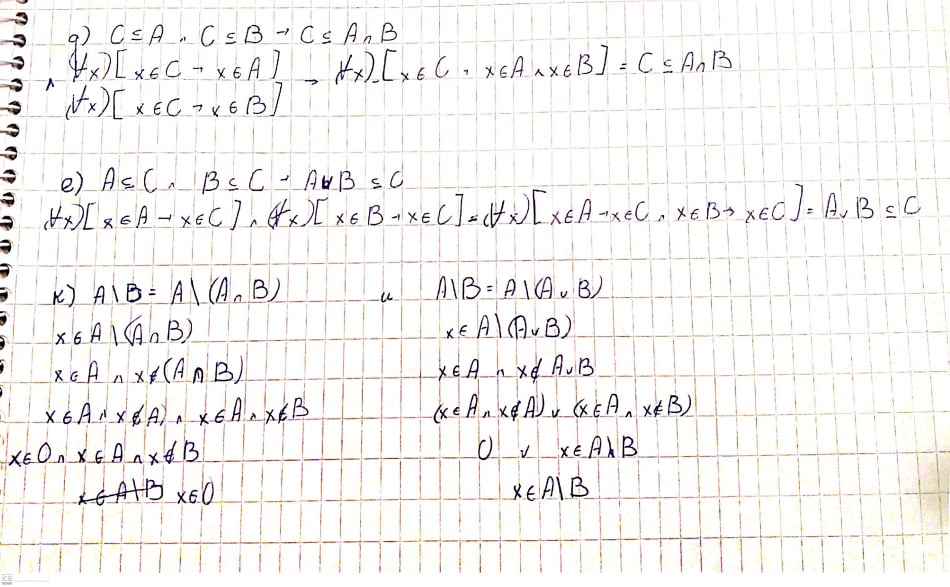 g) C ⊆ A ∧ C ⊆ B → C ⊆ A ∩ B
(∀x)[x ∈ C → x ∈ A] → (∀x)[x ∈ C → x ∈ A ∧ x ∈ B] = C ⊆ A ∩ B
∧ (∀x)[x ∈ C → x ∈ B]
e) A ⊆ C ∧ B ⊆ C → A ∪ B ⊆ C
(∀x)[x ∈ A → x ∈ C] ∧ (∀x)[x ∈ B → x ∈ C] = (∀x)[x ∈ A → x ∈ C ∧ x ∈ B → x ∈ C] = A ∪ B ⊆ C
к) A \ B = A \ (A ∩ B) и A \ B = A \ (A ∪ B)
x ∈ A \ (A ∩ B)
x ∈ A ∧ x ∉ (A ∩ B)
x ∈ A ∧ x ∉ A) ∧ x ∈ A ∧ x ∉ B
x ∈ O ∧ x ∈ A ∧ x ∉ B
x ∈ A \ B x ∈ O
x ∈ A \ (A ∪ B)
x ∈ A ∧ x ∉ A ∪ B
(x ∈ A ∧ x ∉ A) ∨ (x ∈ A ∧ x ∉ B)
O ∨ x ∈ A \ B
x ∈ A \ B
CS